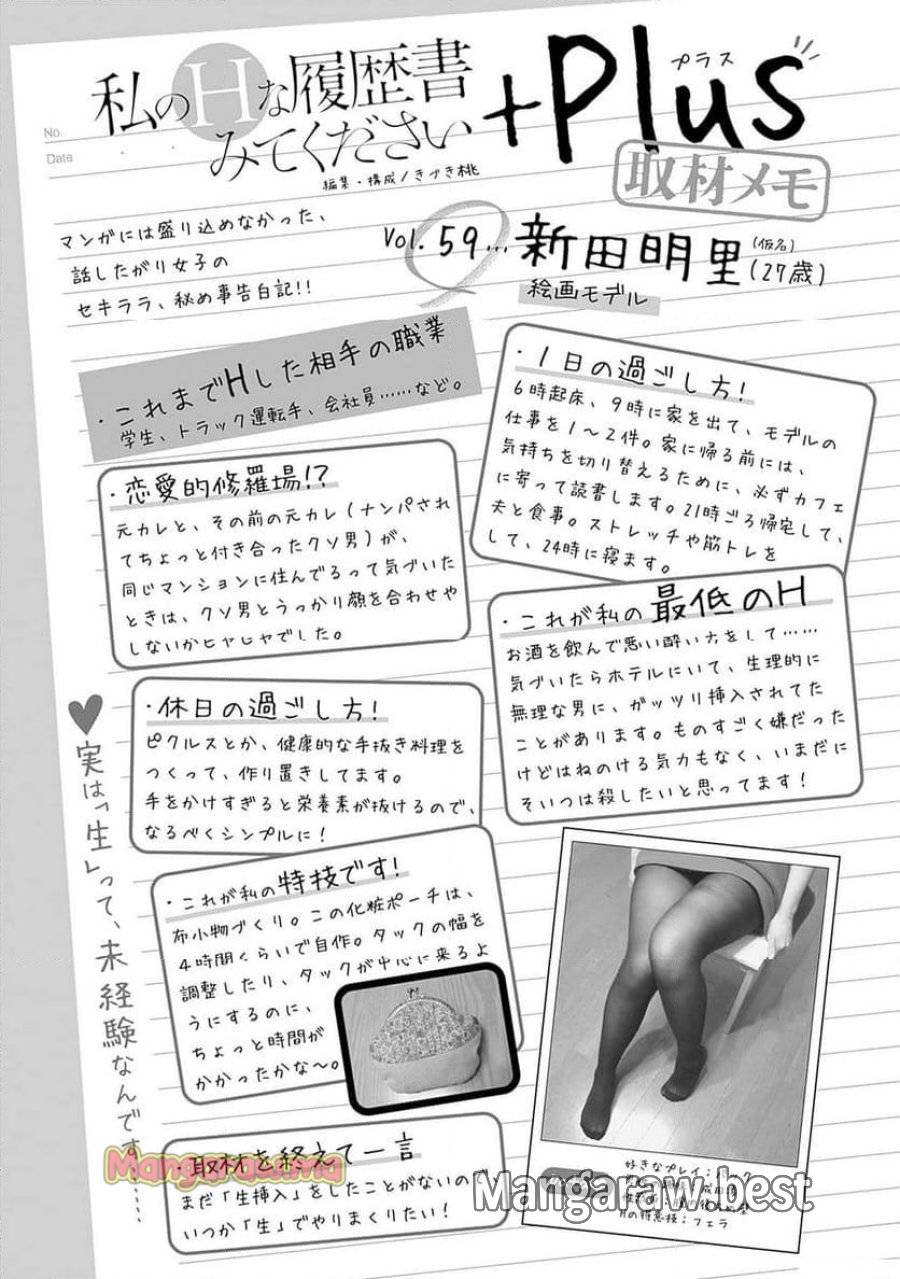 No.
Date
私のHな履歴書
みてください
+Plus
プラス
編集・構成/きづき桃
取材メモ
マンガには盛り込めなかった、
話したがり女子の
セキララ、秘め事告白記!!
Vol.59…新田明里(仮名)(27歳)
絵画モデル
・これまでHした相手の職業
学生、トラック運転手、会社員……など。
・1日の過ごし方!
6時起床、9時に家を出て、モデルの
仕事を1〜2件。家に帰る前には、
気持ちを切り替えるために、必ずカフェ
に寄って読書します。21時ごろ帰宅して、
夫と食事。ストレッチや筋トレを
して、24時に寝ます。
・恋愛的修羅場!?
元カレと、その前の元カレ(ナンパされ
てちょっと付き合ったクソ男)が、
同じマンションに住んでるって気づいた
ときは、クソ男とうっかり顔を合わせや
しないかヒヤヒヤでした。
・これが私の最低のH
お酒を飲んで悪い酔い方をして……
気づいたらホテルにいて、生理的に
無理な男に、ガッツリ挿入されてた
ことがあります。ものすごく嫌だった
けどはねのける気力もなく、いまだに
そいつは殺したいと思ってます!
・休日の過ごし方!
ピクルスとか、健康的な手抜き料理を
つくって、作り置きしてます。
手をかけすぎると栄養素が抜けるので、
なるべくシンプルに!
・これが私の特技です!
布小物づくり。この化粧ポーチは、
4時間くらいで自作。タックの幅を
調整したり、タックが中心に来るよ
うにするのに、
ちょっと時間が
かかったかな〜。
♥実は「生」って、未経験なんです……
・取材を終えて一言
まだ「生挿入」をしたことがないので
いつか「生」でやりまくりたい!
好きなプレイ:
Hの得意技:フェラ
Mangaraw.ma
Mangaraw.best